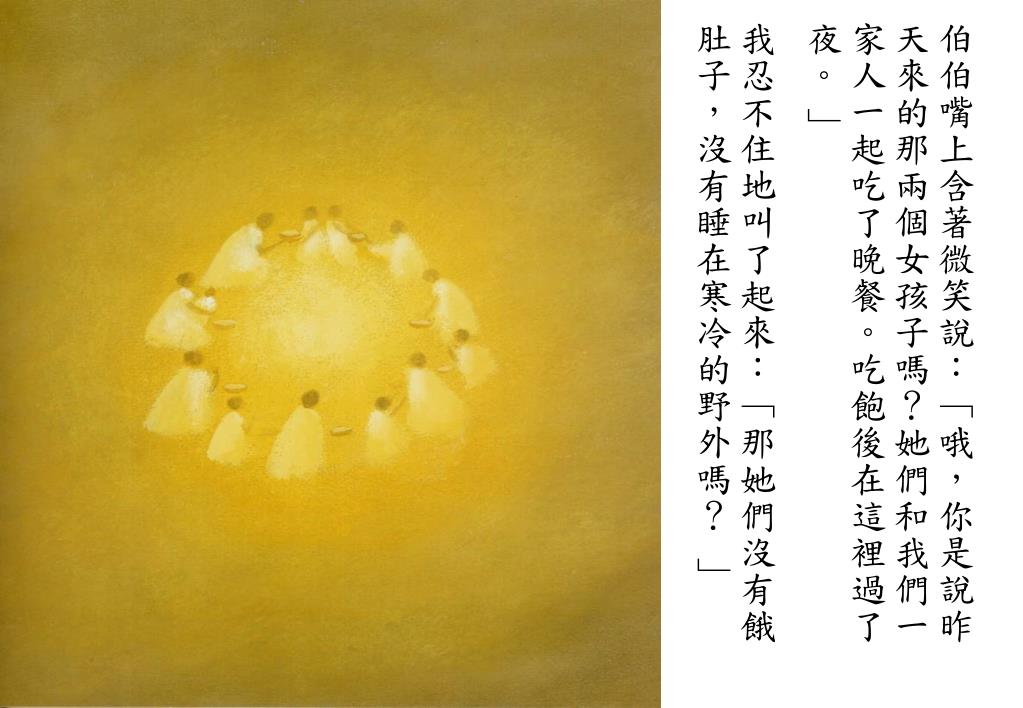 伯伯嘴上含著微笑說：「哦，你是說昨
天來的那兩個女孩子嗎？她們和我們一
家人一起吃了晚餐。吃飽後在這裡過了
夜。」
我忍不住地叫了起來：「那她們沒有餓
肚子，沒有睡在寒冷的野外嗎？」